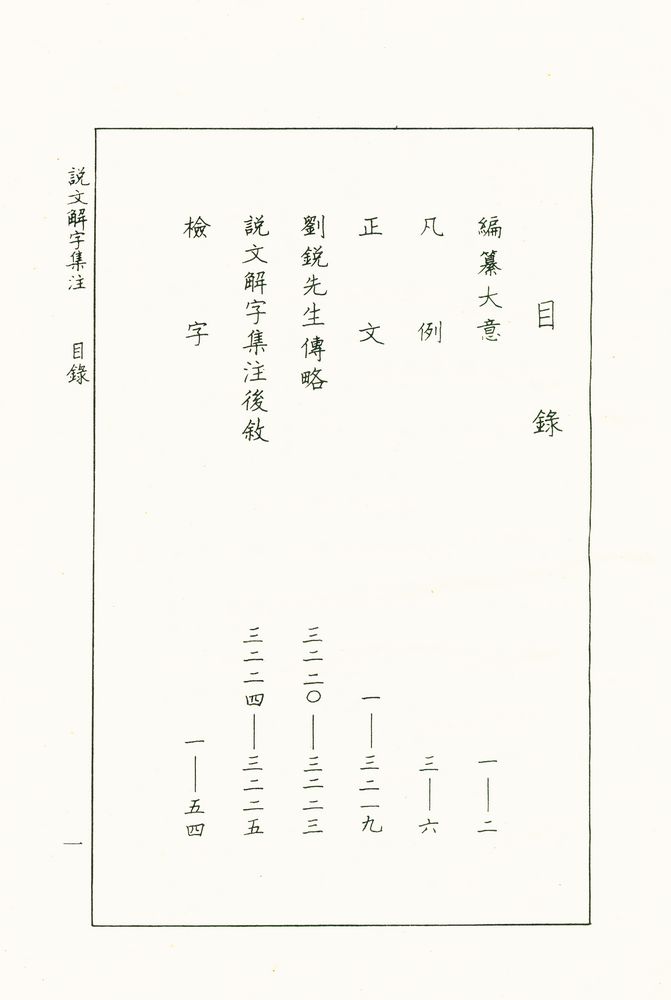 目錄
編纂大意 一——二
凡例 三——六
正文 一——三二一九
劉銳先生傳略 三二二〇——三二二三
説文解字集注後敘 三二二四——三二二五
檢字 一——五四
説文解字集注 目錄 一